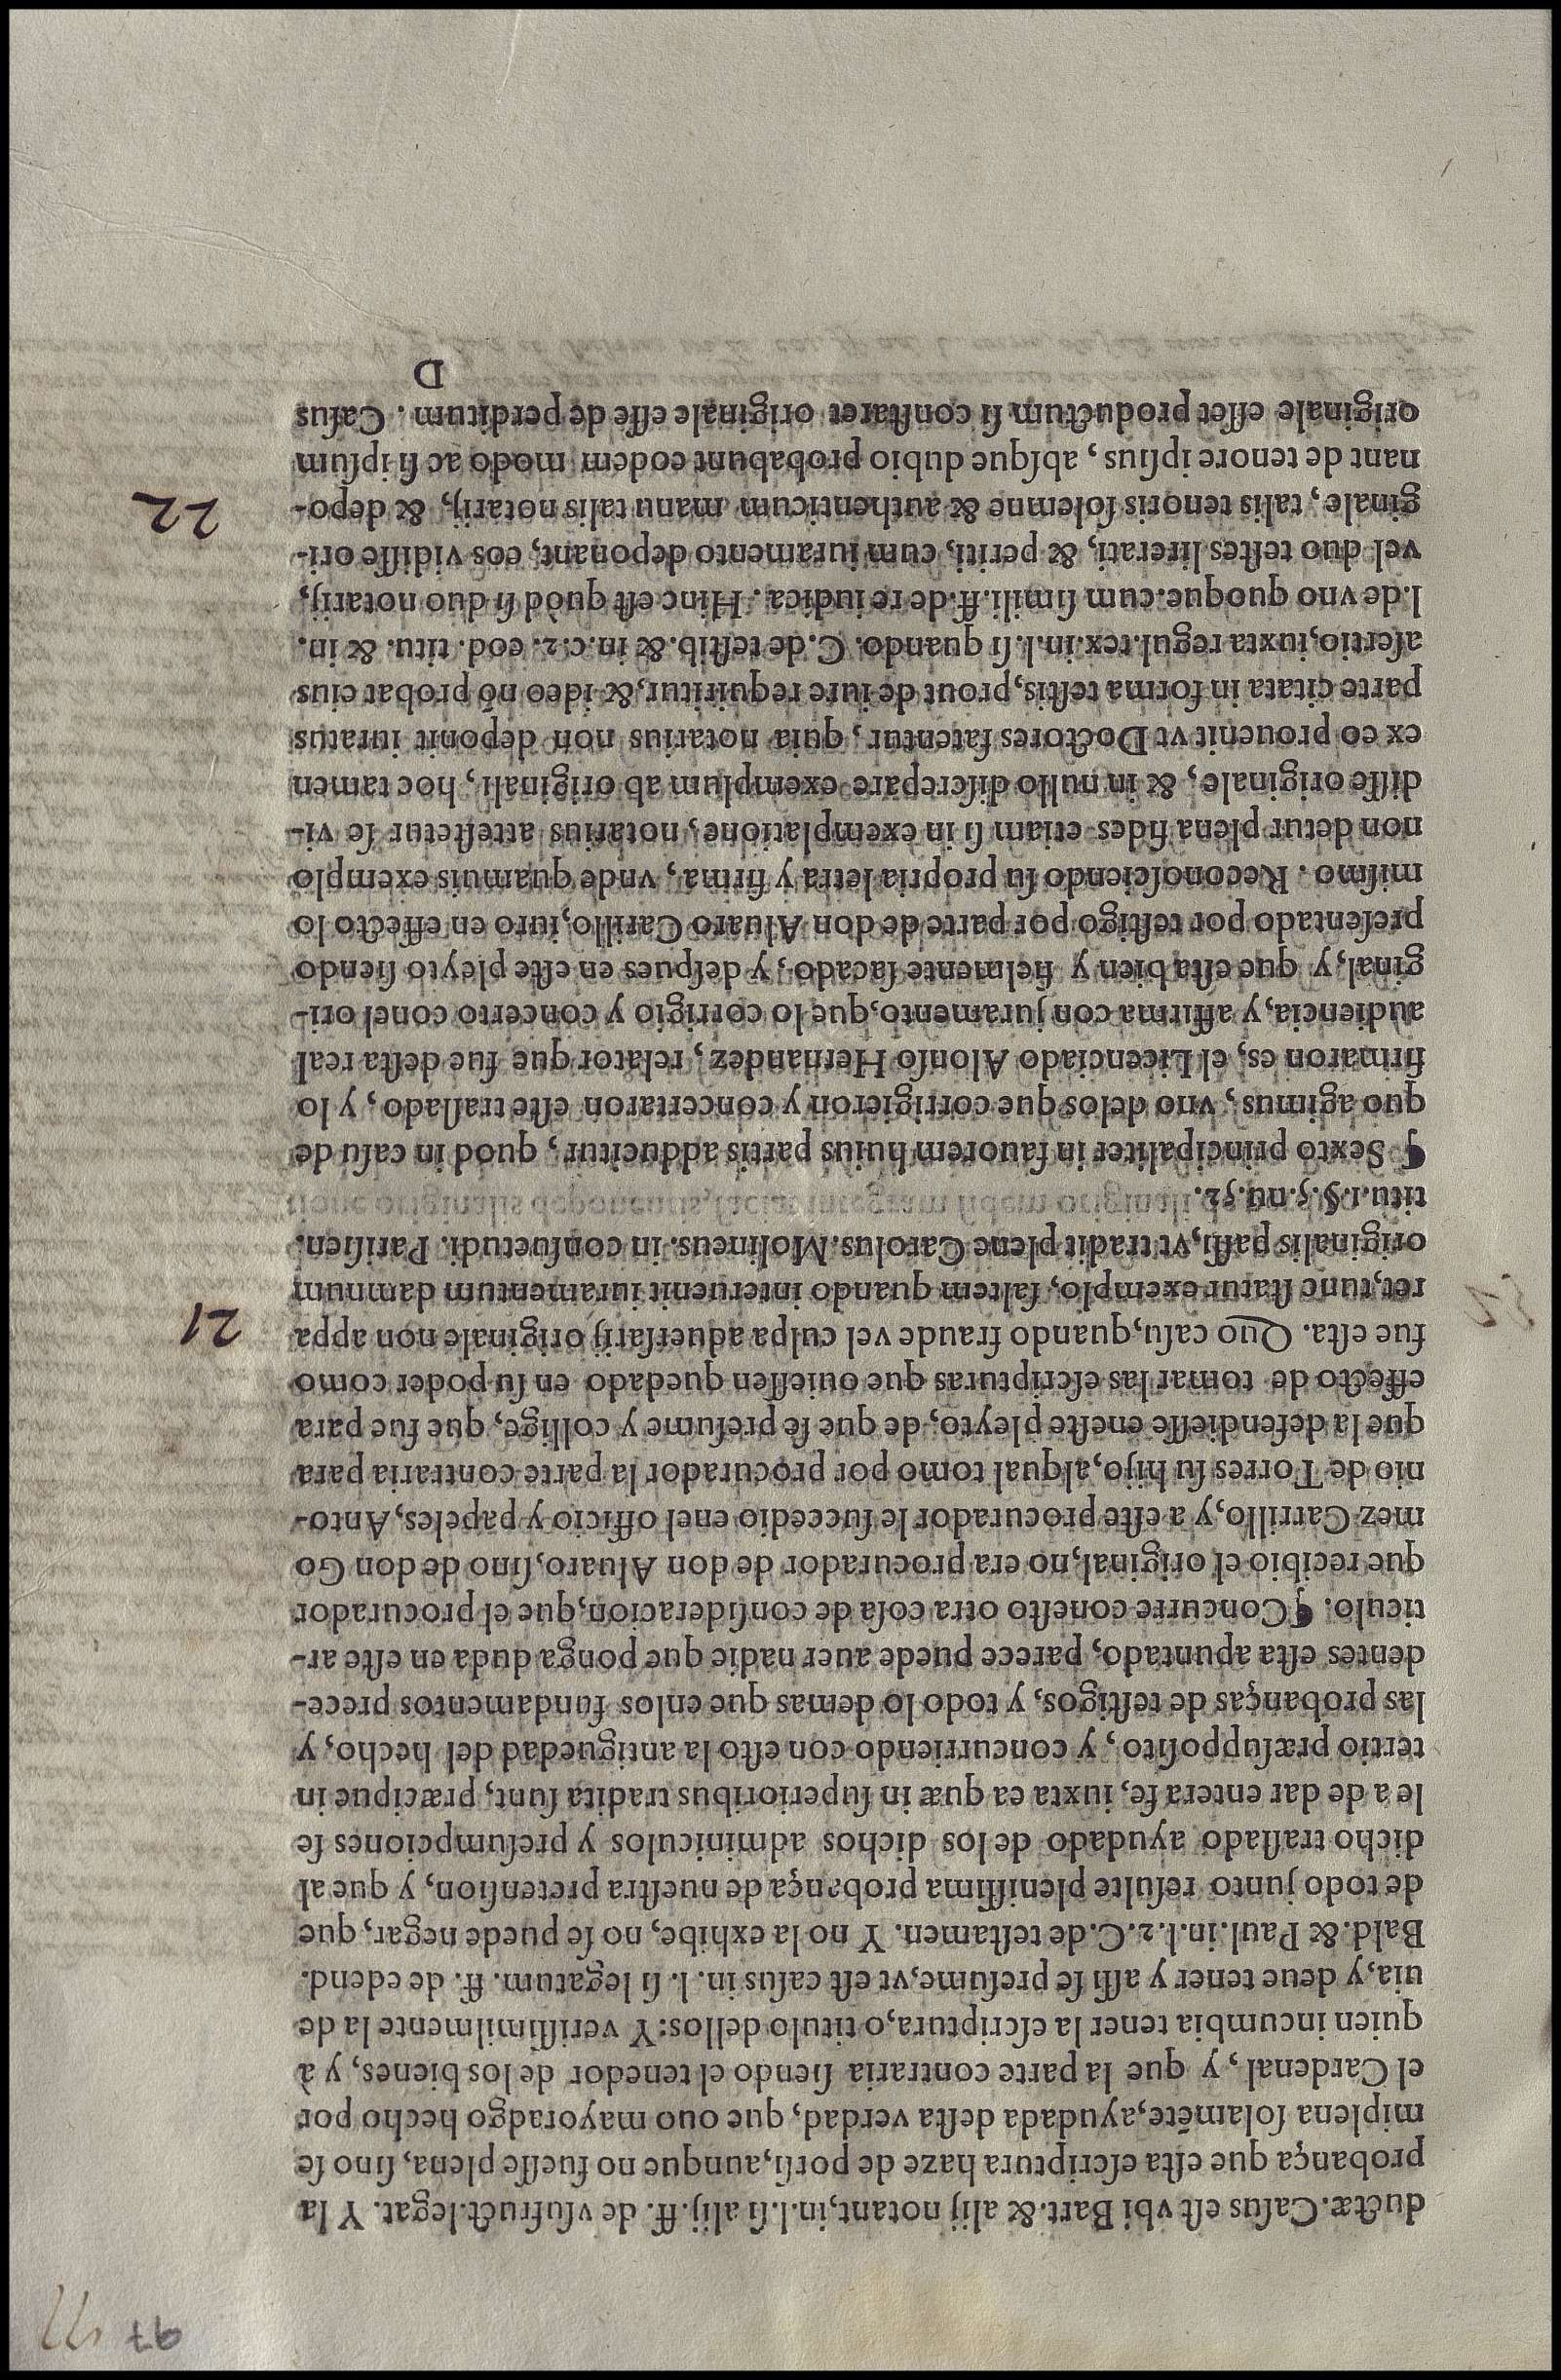 97
ductæ. Casus est vbi Bart. & alij notant, in. l. si alij. ff. de vsufruct. legat. Y la
probança que esta escriptura haze de porsi, aunque no fuesse plena, sino se
miplena solamẽte, ayudada desta verdad, que ouo mayoradgo hecho por
el Cardenal, y que la parte contraria siendo el tenedor de los bienes, y à
quien incumbia tener la escriptura, o titulo dellos: Y verissimilmente la de
uia, y deue tener y assi se presume, vt est casus in. l. si legatum. ff. de edend.
Bald. & Paul. in. l. 2. C. de testamen. Y no la exhibe, no se puede negar, que
de todo junto resulte plenissima probança de nuestra pretension, y que al
dicho traslado ayudado de los dichos adminiculos y presumpciones se
le a de dar entera fe, iuxta ea quæ in superioribus tradita sunt, præcipue in
tertio præsupposito, y concurriendo con esto la antiguedad del hecho, y
las probanças de testigos, y todo lo demas que enlos fundamentos prece-
dentes esta apuntado, parece puede auer nadie que ponga duda en este ar-
ticulo. ¶ Concurre conesto otra cosa de consideracion, que el procurador
que recibio el original, no era procurador de don Aluaro, sino de don Go
mez Carrillo, y a este procurador le succedio enel officio y papeles, Anto-
nio de Torres su hijo, alqual tomo por procurador la parte contraria para
que la defendiesse eneste pleyto, de que se presume y collige, que fue para
effecto de tomar las escripturas que ouiessen quedado en su poder como
fue esta. Quo casu, quando fraude vel culpa aduersarij originale non appa
21
ret, tunc statur exemplo, saltem quando interuenit iuramentum damnum
originalis passi, vt tradit plene Carolus. Molineus. in consuetudi. Parisien.
titu. 1. §. 5. nū. 52.
¶ Sexto principaliter in fauorem huius partis adducitur, quòd in casu de
quo agimus, vno delos que corrigieron y concertaron este traslado, y lo
firmaron es, el Licenciado Alonso Hernandez, relator que fue desta real
audiencia, y affirma con juramento, que lo corrigio y concerto conel ori-
ginal, y que esta bien y fielmente sacado, y despues en este pleyto siendo
presentado por testigo por parte de don Aluaro Carillo, iuro en effecto lo
mismo. Reconosciendo su propria letra y firma, vnde quamuis exemplo
non detur plena fides etiam si in exemplatione, notarius attestetur se vi-
disse originale, & in nullo discrepare exemplum ab originali, hoc tamen
ex eo prouenit vt Doctores fatentur, quia notarius non deponit iuratus
parte citata in forma testis, prout de iure requiritur, & ideo nō probat eius
asertio, iuxta regul. tex. in. l. si quando. C. de testib. & in. c. 2. eod. titu. & in.
l. de vno quoque. cum simili. ff. de re iudica. Hinc est quòd si duo notarij,
vel duo testes literati, & periti, cum iuramento deponant, eos vidisse ori-
ginale, talis tenoris solemne & authenticum manu talis notarij, & depo-
22
nant de tenore ipsius, absque dubio probabunt eodem modo ac si ipsum
originale esset productum si constaret originale esse de perditum. Casus
D